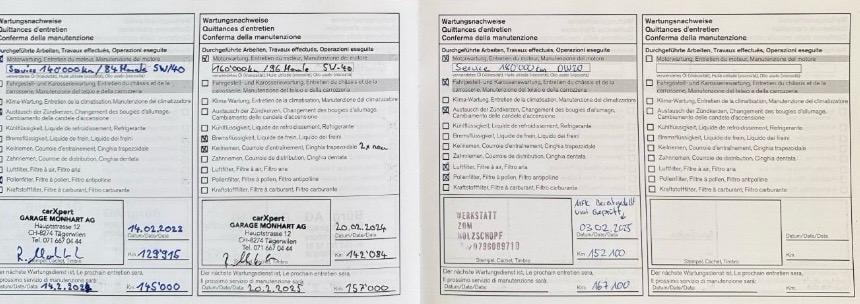 Wartungsnachweise
Quittances d'entretien
Conferma della manutenzione
Durchgeführte Arbeiten, Travaux effectués, Operazioni eseguite
Motorwartung, Entretien du moteur, Manutenzione del motore
Service 140'000km / 84 Monate 5W/40
Fahrgestell- und Karosseriewartung, Entretien du châssis et de la
carrosserie, Manutenzione del telaio e della carrozzeria
Klima-Wartung, Entretien de la climatisation, Manutenzione del climatizzatore
Austausch der Zündkerzen, Changement des bougies d'allumage,
Cambiamento delle candele d'accensione
Kühlflüssigkeit, Liquide de refroidissement, Refrigerante
Bremsflüssigkeit, Liquide de frein, Liquido dei freni
Keilriemen, Courroie d'entraînement, Cinghia trapezoidale
Zahnriemen, Courroie de distribution, Cinghia dentata
Luftfilter, Filtre à air, Filtro aria
Pollenfilter, Filtre à pollen, Filtro antipolline
Kraftstofffilter, Filtre à carburant, Filtro carburante
carXpert
GARAGE MONHART AG
Hauptstrasse 12
CH-8274 Tägerwilen
Tel. 071 667 04 44
14.02.2023
Datum/Date/Data
Km 129'915
Der nächste Wartungsdienst ist, Le prochain entretien sera,
Il prossimo servizio di manutenzione sarà:
Datum/Date/Data 14.2.2024 Km 145'000
Wartungsnachweise
Quittances d'entretien
Conferma della manutenzione
Durchgeführte Arbeiten, Travaux effectués, Operazioni eseguite
Motorwartung, Entretien du moteur, Manutenzione del motore
140'000km / 96 Monate 5W-40
Fahrgestell- und Karosseriewartung, Entretien du châssis et de la
carrosserie, Manutenzione del telaio e della carrozzeria
Klima-Wartung, Entretien de la climatisation, Manutenzione del climatizzatore
Austausch der Zündkerzen, Changement des bougies d'allumage,
Cambiamento delle candele d'accensione
Kühlflüssigkeit, Liquide de refroidissement, Refrigerante
Bremsflüssigkeit, Liquide de frein, Liquido dei freni
Keilriemen, Courroie d'entraînement, Cinghia trapezoidale 2x neu
Zahnriemen, Courroie de distribution, Cinghia dentata
Luftfilter, Filtre à air, Filtro aria
Pollenfilter, Filtre à pollen, Filtro antipolline
Kraftstofffilter, Filtre à carburant, Filtro carburante
carXpert
GARAGE MONHART AG
Hauptstrasse 12
CH-8274 Tägerwilen
Tel. 071 667 04 44
20.02.2024
Datum/Date/Data
Km 142'084
Der nächste Wartungsdienst ist, Le prochain entretien sera,
Il prossimo servizio di manutenzione sarà:
Datum/Date/Data 20.2.2025 Km 157'000
Wartungsnachweise
Quittances d'entretien
Conferma della manutenzione
Durchgeführte Arbeiten, Travaux effectués, Operazioni eseguite
Motorwartung, Entretien du moteur, Manutenzione del motore
Service 140'000 km 0W20
Fahrgestell- und Karosseriewartung, Entretien du châssis et de la
carrosserie, Manutenzione del telaio e della carrozzeria
Klima-Wartung, Entretien de la climatisation, Manutenzione del climatizzatore
Austausch der Zündkerzen, Changement des bougies d'allumage,
Cambiamento delle candele d'accensione
Kühlflüssigkeit, Liquide de refroidissement, Refrigerante
Bremsflüssigkeit, Liquide de frein, Liquido dei freni
Keilriemen, Courroie d'entraînement, Cinghia trapezoidale
Zahnriemen, Courroie de distribution, Cinghia dentata
Luftfilter, Filtre à air, Filtro aria
Pollenfilter, Filtre à pollen, Filtro antipolline
Kraftstofffilter, Filtre à carburant, Filtro carburante
WERKSTATT
ZOM
HOLZSCHOPF
MFK Bereitgestellt
und Geprüft
03.02.2025
Datum/Date/Data
Km 152'100
Stempel, Cachet, Timbro
Der nächste Wartungsdienst ist, Le prochain entretien sera,
Il prossimo servizio di manutenzione sarà:
Datum/Date/Data Km 167'100
Wartungsnachweise
Quittances d'entretien
Conferma della manutenzione
Durchgeführte Arbeiten, Travaux effectués, Operazioni eseguite
Motorwartung, Entretien du moteur, Manutenzione del motore
Fahrgestell- und Karosseriewartung, Entretien du châssis et de la
carrosserie, Manutenzione del telaio e della carrozzeria
Klima-Wartung, Entretien de la climatisation, Manutenzione del climatizzatore
Austausch der Zündkerzen, Changement des bougies d'allumage,
Cambiamento delle candele d'accensione
Kühlflüssigkeit, Liquide de refroidissement, Refrigerante
Bremsflüssigkeit, Liquide de frein, Liquido dei freni
Keilriemen, Courroie d'entraînement, Cinghia trapezoidale
Zahnriemen, Courroie de distribution, Cinghia dentata
Luftfilter, Filtre à air, Filtro aria
Pollenfilter, Filtre à pollen, Filtro antipolline
Kraftstofffilter, Filtre à carburant, Filtro carburante
Datum/Date/Data
Km
Stempel, Cachet, Timbro
Der nächste Wartungsdienst ist, Le prochain entretien sera,
Il prossimo servizio di manutenzione sarà:
Datum/Date/Data Km